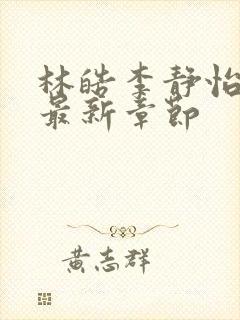 林皓李静怡
最新章节
黄志群